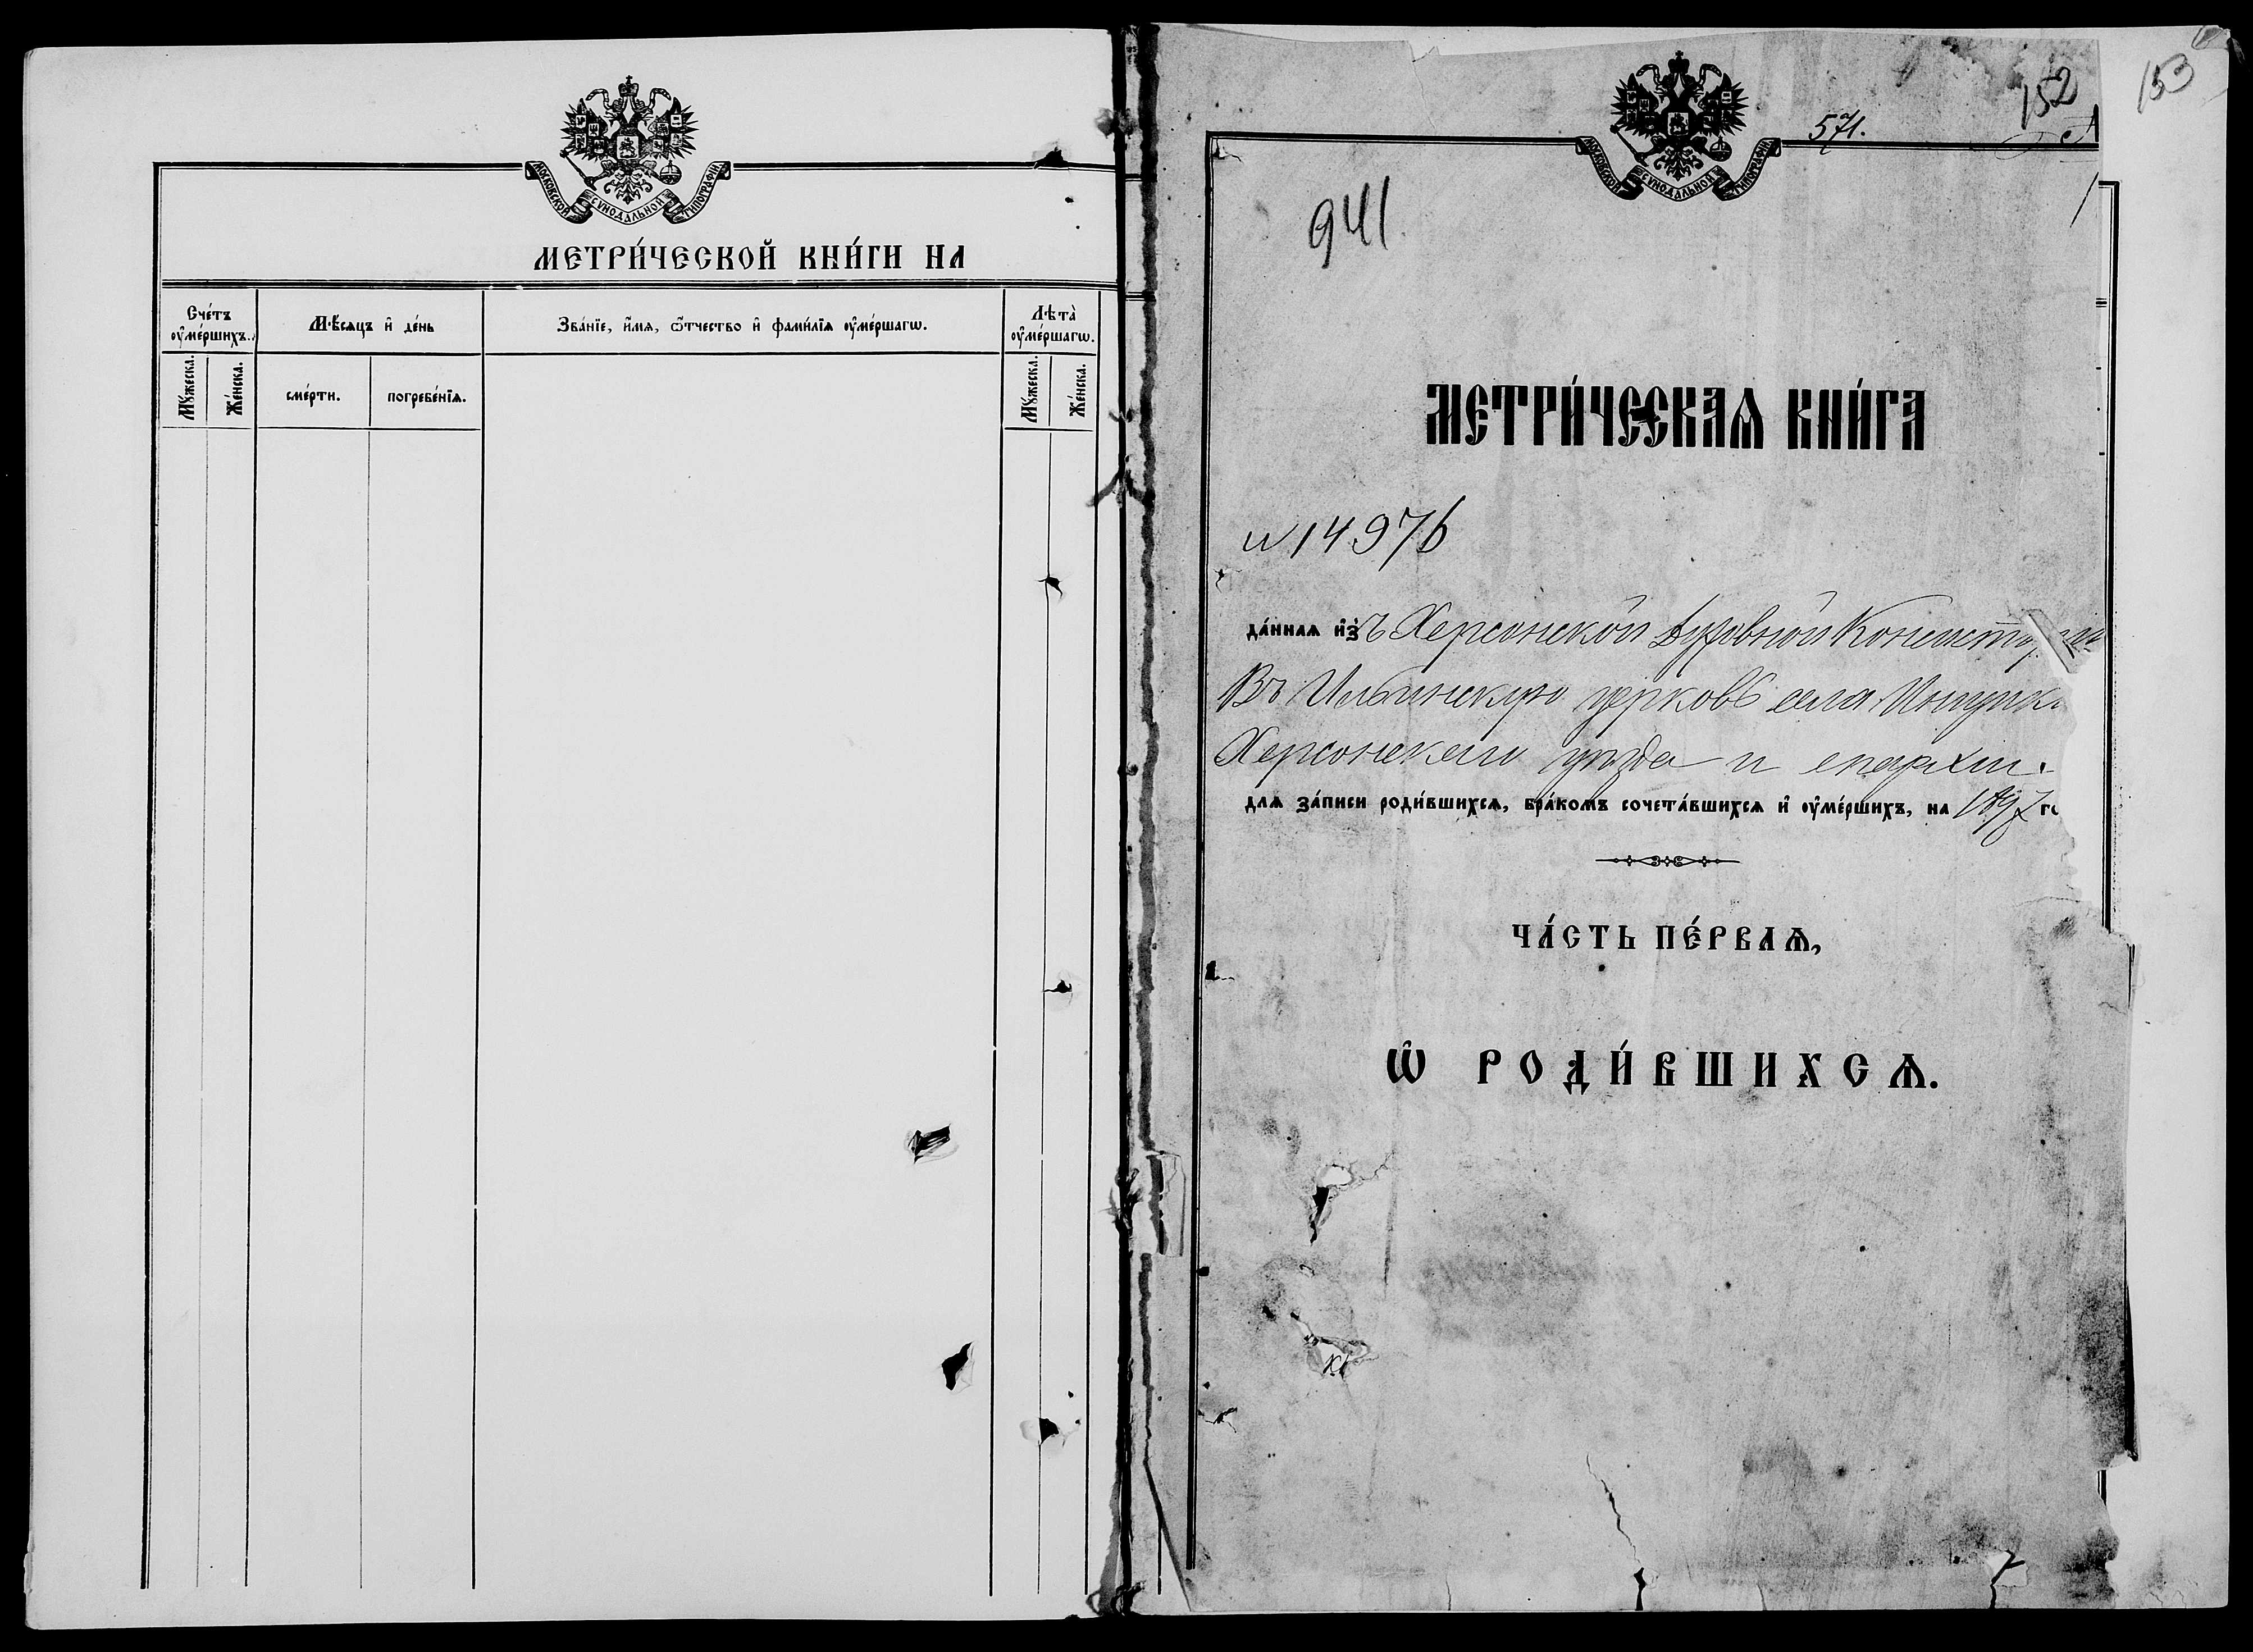 МОСКОВСКОЙ СѴНОДАЛЬНОЙ ТИПОГРАФІИ.
МЕТРИ́ЧЕСКОЙ КНИ́ГИ НА
Сче́тъ ᲂу҆ме́ршихъ.
Мѣ́сяцъ и҆ де́нь
Зва́нїе, и҆́мѧ, ѻ҆́тчество и҆ фами́лїѧ ᲂу҆ме́ршагѡ.
Лѣта̀ ᲂу҆ме́ршагѡ.
Мꙋ́жеска.
Же́нска.
сме́рти.
погребе́нїѧ.
Мꙋ́жеска.
Же́нска.
153
152
571.
МОСКОВСКОЙ СѴНОДАЛЬНОЙ ТИПОГРАФІИ.
941.
МЕТРИ́ЧЕСКАѦ КНИ́ГА
N 14976
да́ннаѧ и҆зъ Херсонской Духовной
Въ Ильинскую церковь села
Херсонскаго уѣзда и епархіи.
длѧ за́писи роди́вшихсѧ, бра́комъ сочета́вшихсѧ и҆ ᲂу҆ме́ршихъ, на 1897 го
ЧА́СТЬ ПЕ́РВАѦ,
Ѡ҆ РОДИ́ВШИХСѦ.